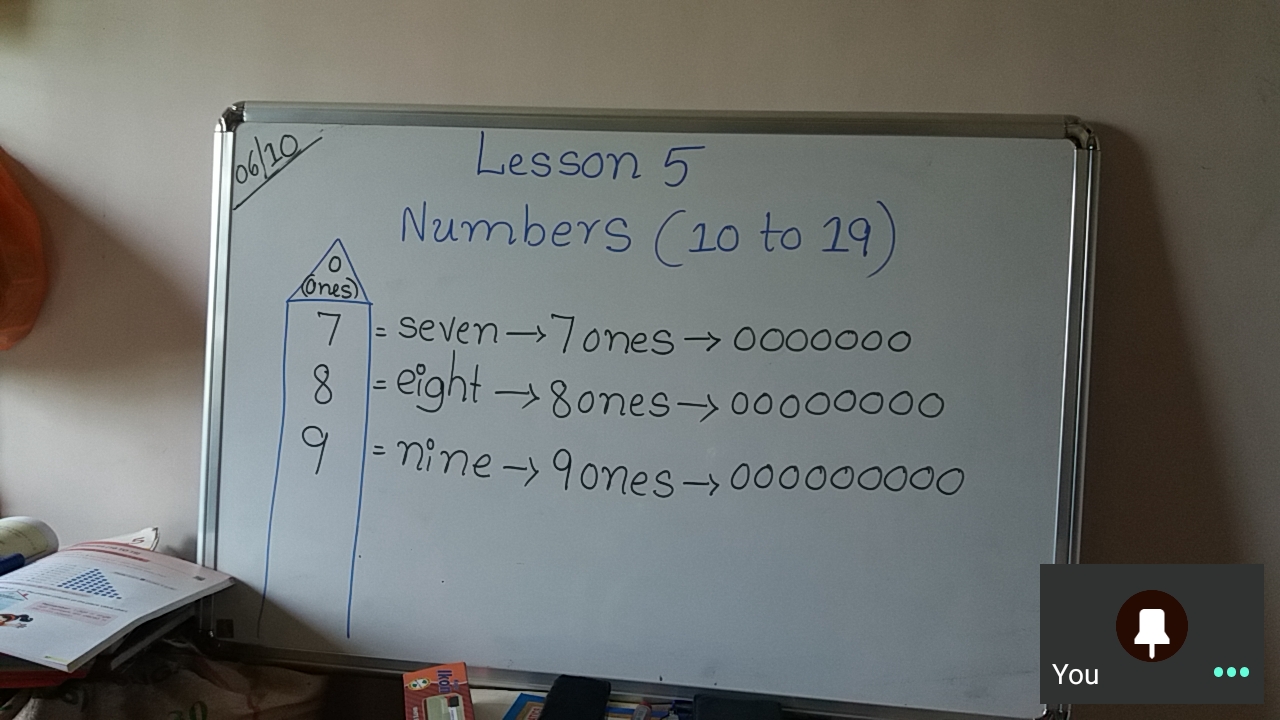 06/10
Lesson 5
Numbers (10 to 19)
0
(ones)
7 = seven → 7 ones → 0000000
8 = eight → 8 ones → 00000000
9 = nine → 9 ones → 000000000
You